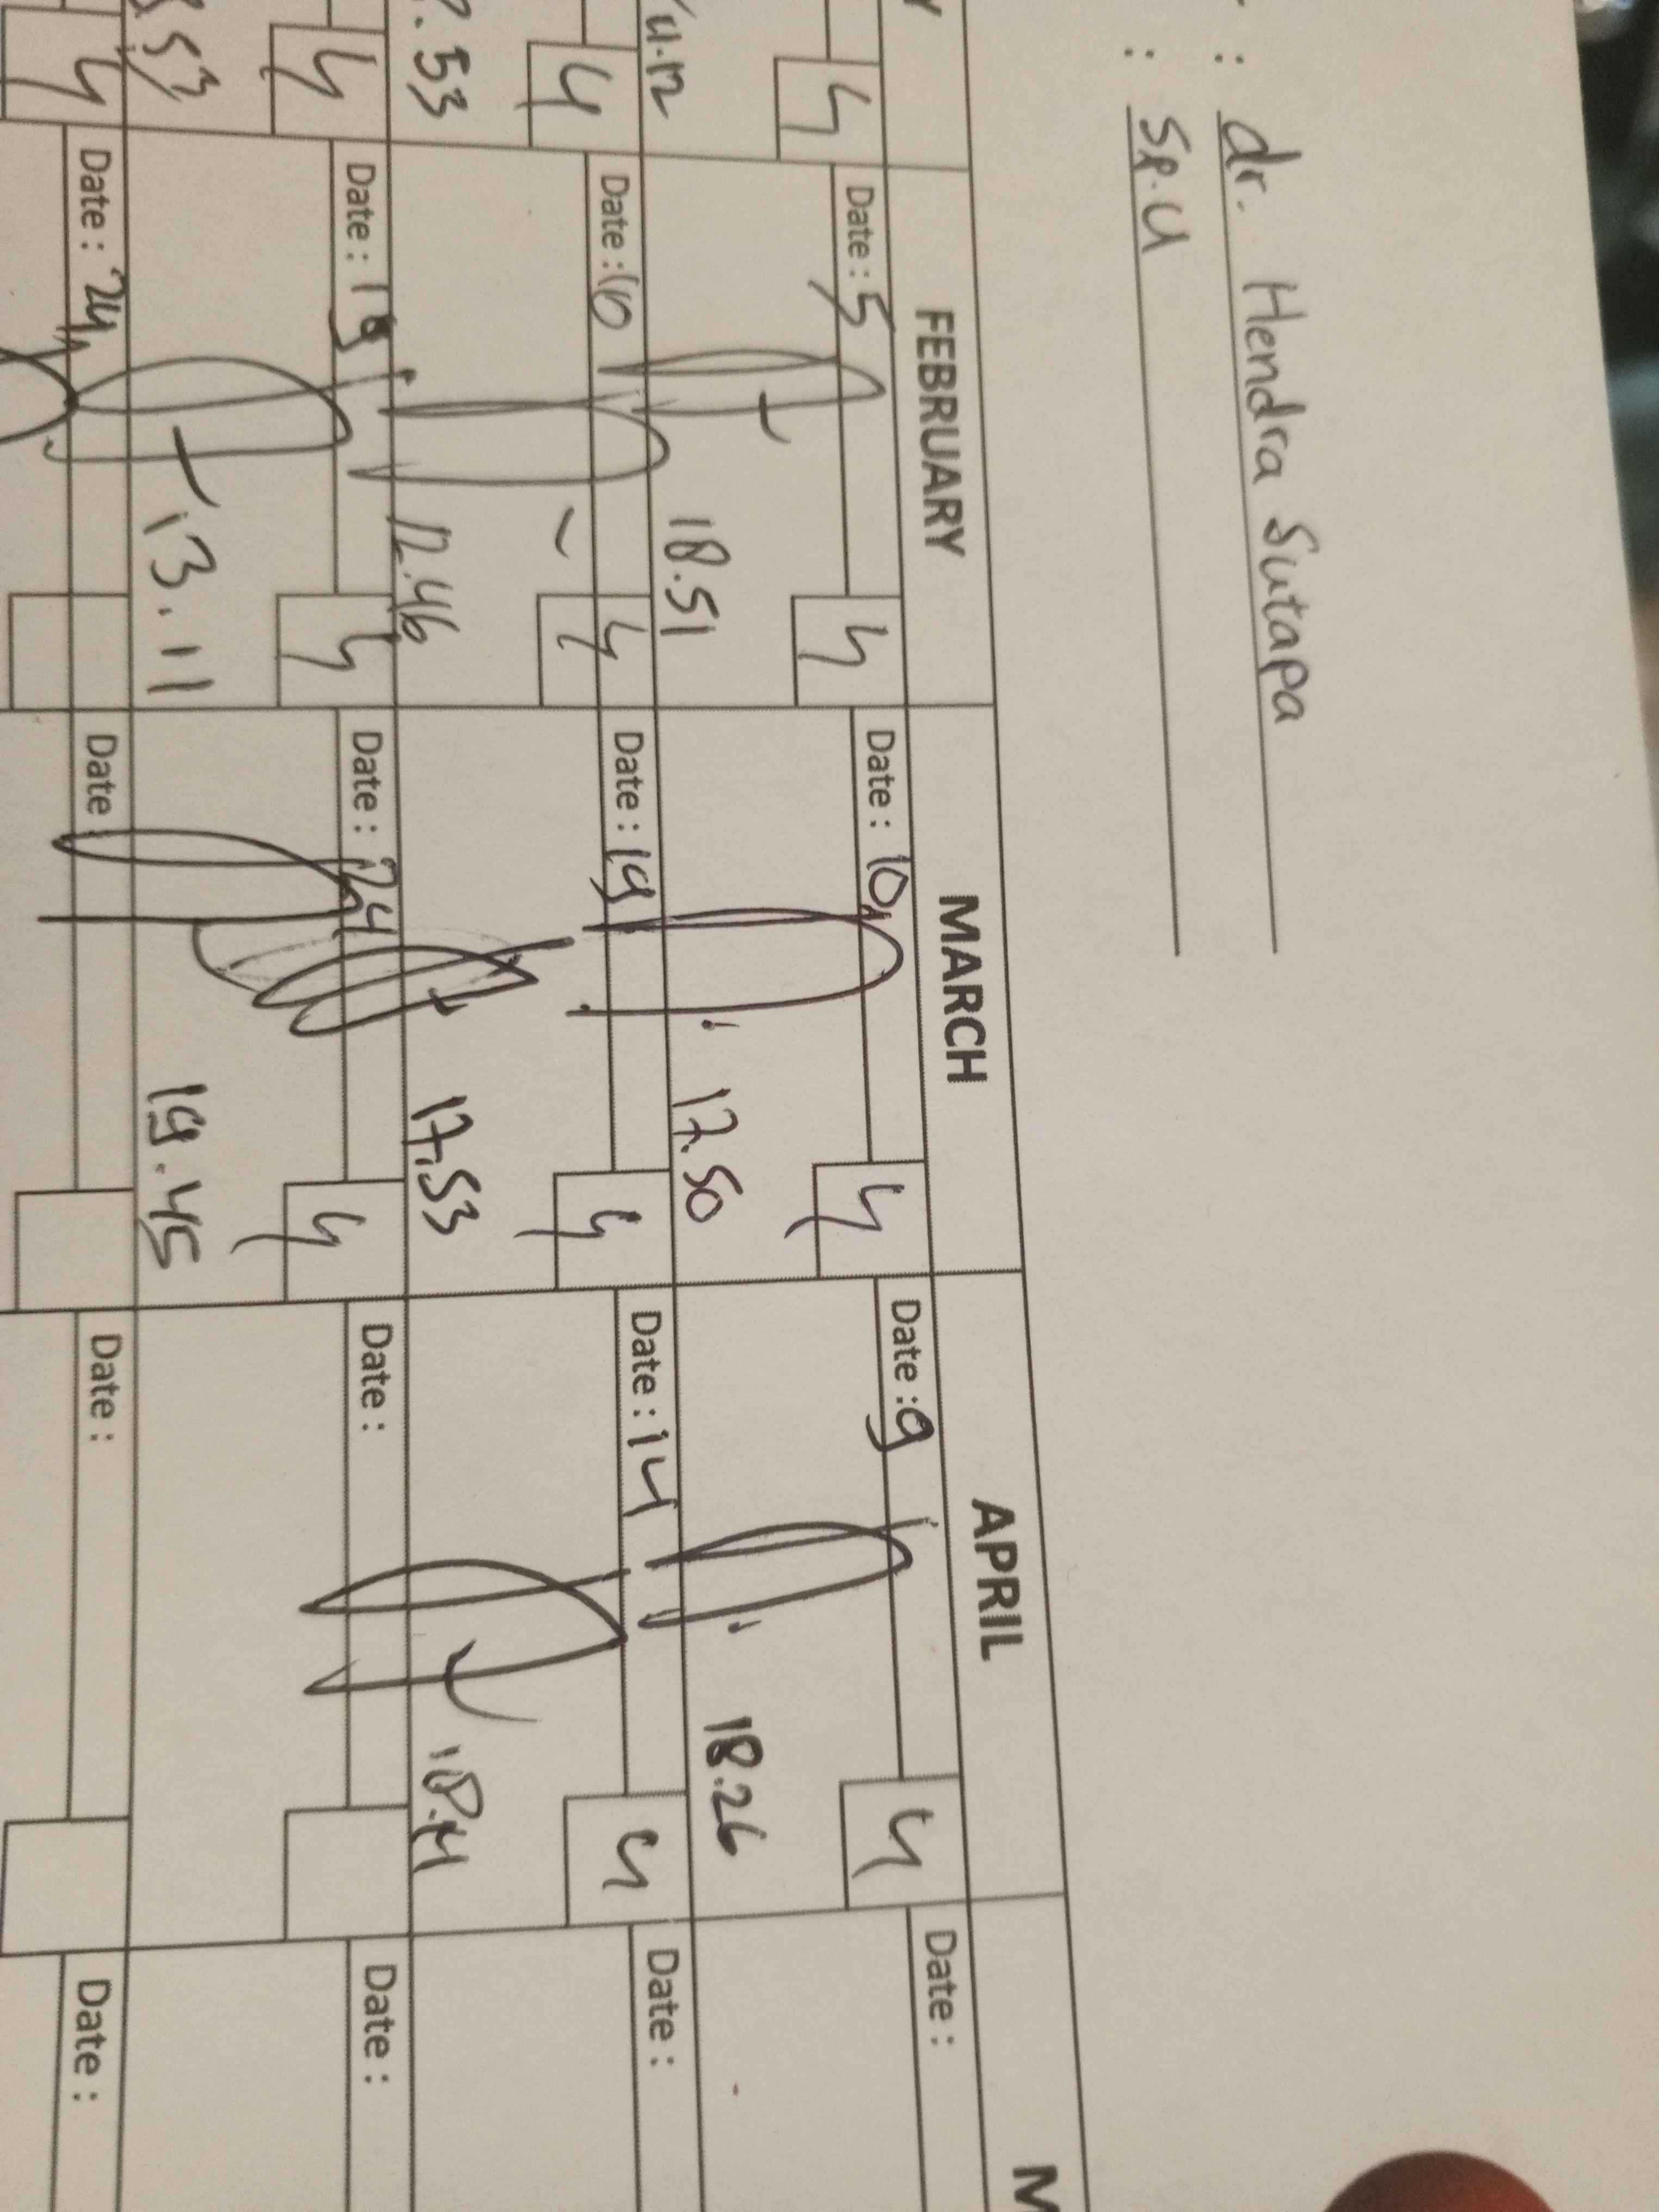 : dr. Hendra Sutapa
: Sp.U
FEBRUARY MARCH APRIL
4 Date : 5 4 Date : 10 4 Date : 9 4 Date :
18.51 17.50 18.26
4 Date : 10 4 Date : 19 4 Date : 14 4 Date :
53 12.46 17.53
4 Date : 19 4 Date : 24 4 Date : Date :
53 13.11 19.45
4 Date : 24 Date : Date : Date :